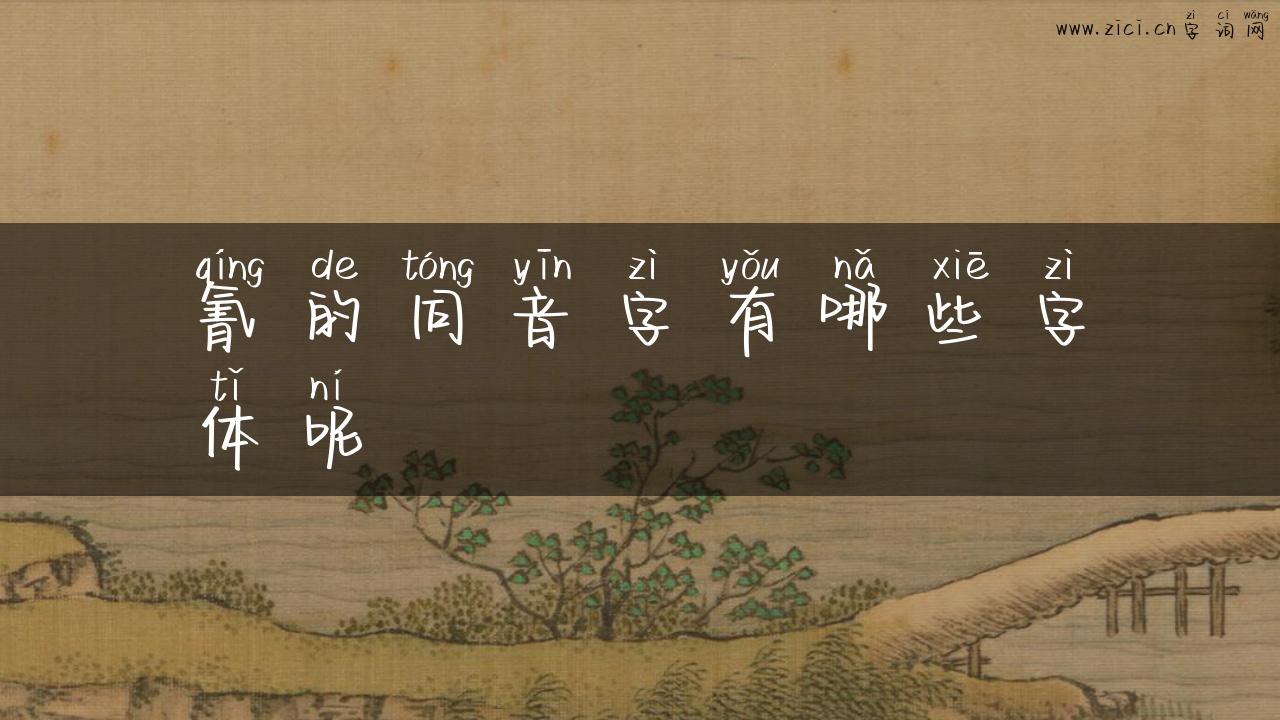 zì cí wǎng
www.zici.cn 字词网
qíng de tóng yīn zì yǒu nǎ xiē zì
氰的同音字有哪些字
tǐ ní
体呢